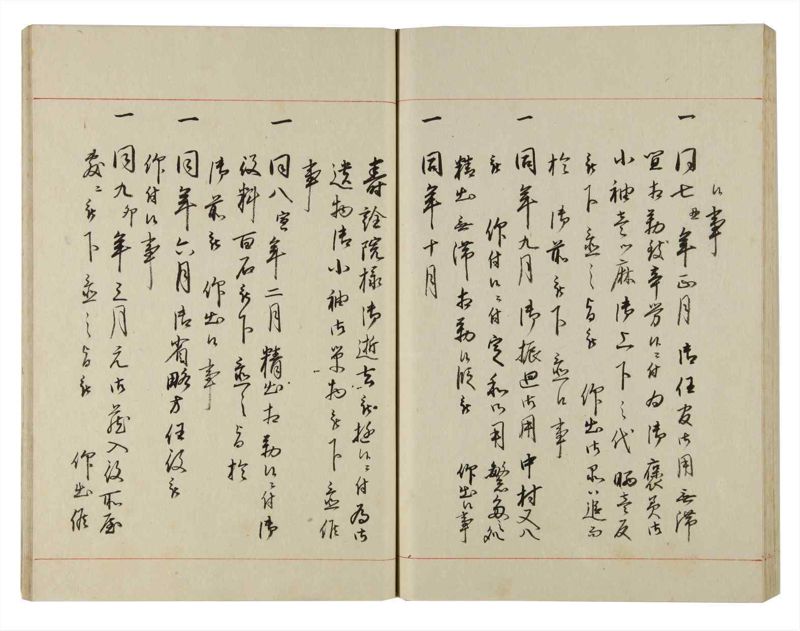 候事
一 同七丑年正月御任官御用無滞
宜相勤致辛労候ニ付為御褒美御
小袖壱ツ麻御上下之代晒壱反
被下置之旨被 仰出御品ハ追而
於 御前被下置候事
一 同年九月御振廻御用中村又八
被 仰付候ニ付実和御用繁多処
精出無滞相勤候段被 仰出候事
一 同年十月
寿詮院様御逝去被遊候ニ付為御
遺物御小袖御単物被下置候
事
一 同八寅年二月精出相勤候ニ付御
役料百石被下置之旨於
御前被 仰出候事
一 同年六月御省略方任役被
仰付候事
一 同九卯年三月元御蔵入役所屋
敷ニ被下置之旨被 仰出候